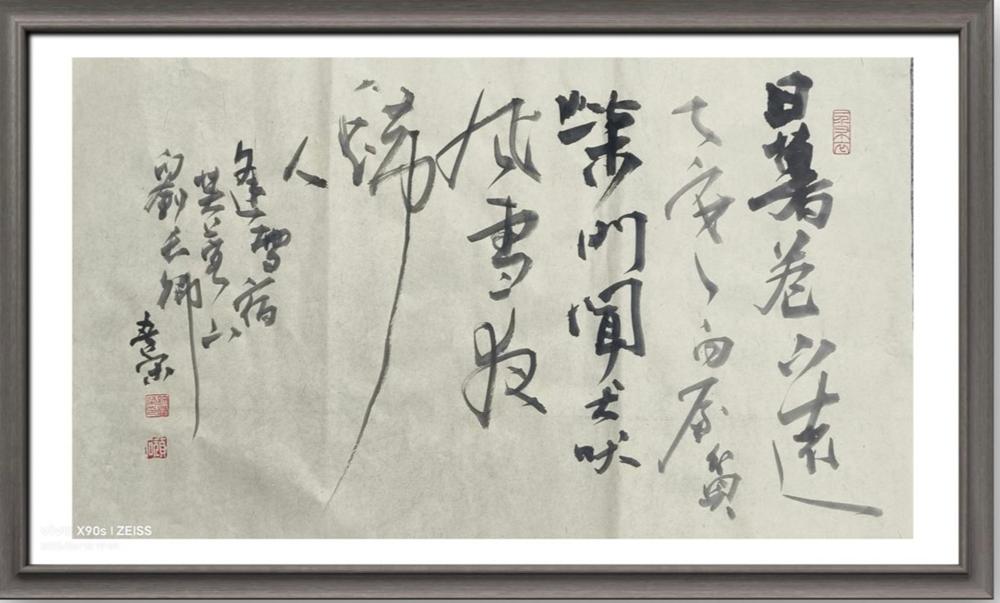 日暮苍山遠
天寒白屋貧
柴門聞犬吠
风雪夜
歸
人
逢雪宿
芙蓉山
劉长卿
vivo X90s | ZEISS